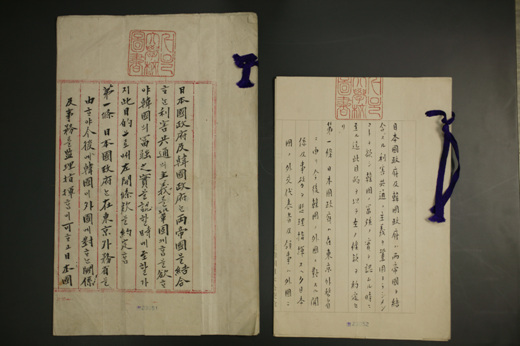 日本國政府及韓國政府ᄂᆞᆫ兩帝國을結合
ᄒᆞᄂᆞᆫ利害共通의主義를鞏固케ᄒᆞᆷ을欲ᄒᆞ
야韓國의富强之實을認ᄒᆞᆯ時에至ᄒᆞᆯ
지此目的으로ᄡᅥ左開條款을約定ᄒᆞᆷ
第一條 日本國政府ᄂᆞᆫ在東京外務省을
由ᄒᆞ야今後에韓國이外國에對ᄒᆞᄂᆞᆫ關係
及事務를監理指揮ᄒᆞᆷ이可ᄒᆞ고日本國
日本國政府及韓國政府ハ兩帝國ヲ結
合スル利害共通ノ主義ヲ鞏固ナラシメン
コトヲ欲シ韓國ノ富强ノ實ヲ認ムル時ニ
至ル迄此目的ヲ以テ左ノ條款ヲ約定セ
リ
第一條 日本國政府ハ在東京外務省ニ
由リ今後韓國ノ外國ニ對スル關
係及事務ヲ監理指揮スヘク日本
國ノ外交代表者及領事ハ外國ニ